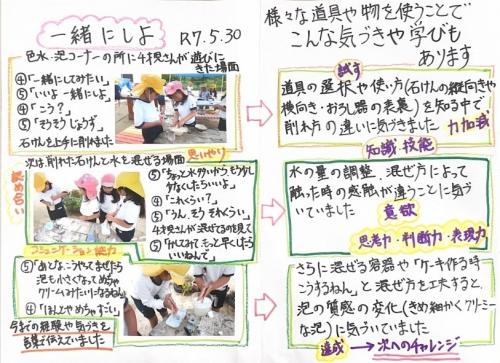 一緒にしよ R7.5.30
色水・泡コーナーの所に4才児さんが遊びに
きた場面
④「一緒にしてみたい」
⑤「いいよ 一緒にしよ」
④「こう？」
⑤「そうそうじょうず」
石けんを上手に削れました
次は削れた石けんと水を混ぜる場面
思いやり
認め合い
⑤「ちょっと水多いからもう少し
少なくしたらいいよ」
④「これくらい？」
⑤「うん、そう それくらい」
4才児さんが混ぜるのを見て
⑤「かしてみて もっと早くしたら
いいねんで」
コミュニケーション能力
⑤「あとな こうやってまぜたら
泡も小さくなってめちゃ
クリームみたいになるねん」
④「ほんとや めちゃすごい」
今までの経験や気づきを
言葉で伝えていました
様々な道具や物を使うことで
こんな気づきや学びも
あります
試す
道具の選択や使い方(石けんの縦向きや
横向き・おろし器の表裏)を知る中で、
削れ方の違いに気づきました
力加減
知識 技能
水の量の調整、混ぜ方によって
触った時の感触が違うことに気づ
いていました
意欲
思考力・判断力・表現力
さらに混ぜる容器や「ケーキ作る時
こうするねん」と混ぜ方を工夫すると、
泡の質感の変化(きめ細かくクリーミー
な泡)に気づいていました
達成 → 次へのチャレンジ